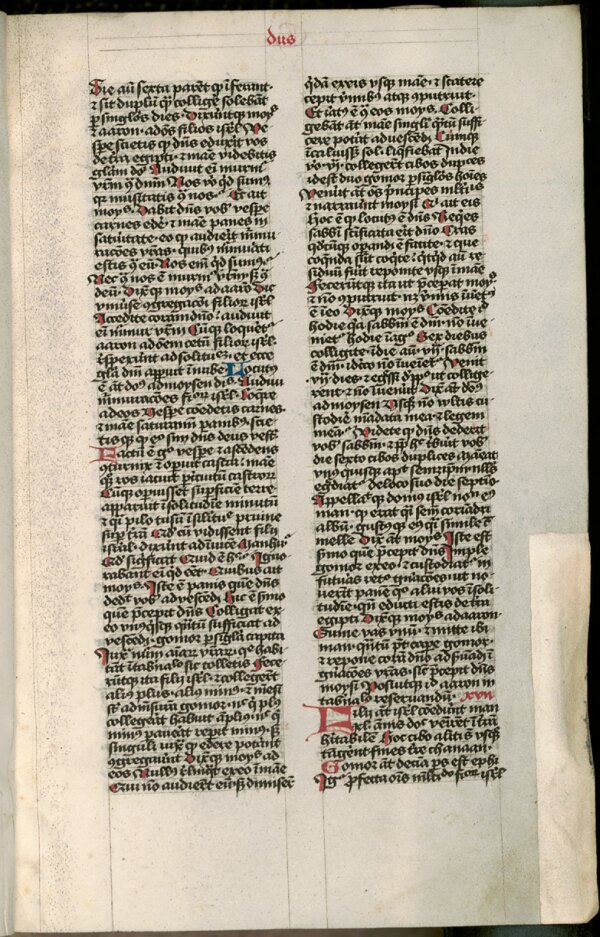 dus
Die aūt sexta parēt qđ īferant·
⁊ sit duplū q̄ʒ collige᷑ solebāt
ꝑ singłos dies· Dixūntqʒ moyses
⁊ aaron· ad oēs filios isrł· Ve
spe scietis qʒ dn̄s eduxerit vos
de tra egipti· ⁊ mane videbitis
glām dn̄i Audiuit eī murmᷣ
vr̄m ꝯ dnm̄ Nos vo qđ sumꝰ
qʒ musitatis ꝯ nos· Et ait
moyses· Dabit dn̄s vob vespe
carnes ede᷑· ⁊ mane panes in
saturitate· eo qʒ audierit murmu
rationes vr̄as· quibꝰ murmurati
estis ꝯ eū· Nos em̄ qđ sumꝰ
Nec ꝯ nos ē murmᷣ vr̄m sʒ ꝯ
deū· Dixitqʒ moyses ad aaron Dic
vniuerse ꝯgregacōni filioꝝ isrł
Accedite coram dn̄o· audiuit
eī murmur vr̄m Cūqʒ loquet᷑
aaron ad oēm cetū filioꝝ isrł·
respexerūt ad solitudinē· et ecce
glā dn̄i apparuit ī nube Locutꝰ
ē āt dn̄s ad moysen dicēs· Audiui
murmuracōes filioꝝ isrł· Loqre
ad eos Vespe comedetis carnes·
⁊ mane saturamī panibꝰ· scie
tisqʒ qʒ ego sum dn̄s deus vester
Factū ē g̊ vespe· ⁊ ascēdens
coturnix ⁊ opuit castra· mane
qʒ ros iacuit ꝑ circuitū castroꝝ
Cūqʒ opuisset supficie terre·
apparuit ī solitudine minutū
⁊ qi pilo tusū ī silitudinē pruine
sup trā Qđ cū vidissent filij
israel· dixerunt ad īuicē Manhu
Qđ sigficat Quid ē hoc· Igno
rabant eī qđ eēt· Quibus ait
moyses· Iste ē panis quē dn̄s
dedit vob ad vescedū Hic ē smo
quē p̄cepit dn̄s Colligat ex
eo vnꝰqʒsqʒ qn̄tū sufficiat ad
vescēdū· gomor ꝑ singła capita
Iux̄ num aīaꝝ vr̄aꝝ· que habi
tāt ī tabnaclo sic colletis Fece
rūtqʒ ita filij isrł· ⁊ collegerūt
aliꝰ plus· aliꝰ minꝰ· ⁊ mensi
st ad msuram gomor· nec qʒ plꝰ
collegerat habuit āplꝰ· nec qʒ
minꝰ pauerat repit minꝰ· sʒ
singuli iux̄ qʒ edere potāt
ꝯgregauerūt Dixitqʒ moyses ad
eos Nullꝰ relinqt ex eo ī mane
Qui nō audierūt eū· sʒ dimiserūt
qdā ex eis vsqʒ mane· ⁊ scatere
cepit vmibꝰ atqʒ ꝯputruit·
Et iratꝰ ē ꝯ eos moyses· Colli
gebāt āt mane singli qn̄tū suffi
cere potāt ad vescēdū Cumqʒ
ī caluisset sol· liqfiebat In die
vo vi· collegerūt cibos duplices
id est duo gomor ꝑ siglos hoīes
Venerūt āt ōs pncipes mltinis
⁊ narrauerūt moysi Qui ait eis
Hoc ē qʒ locutꝰ ē dn̄s Reqes
sabbi sc̄ificata erit dn̄o Cras
qdcūqʒ opandū ē facite· ⁊ que
coqnda sūt coqte· Qcqđ aū re
siduū fuit reponite vsqʒ ī mane
Fecerūtqʒ ita ut p̄ceperat moyses·
⁊ nō ꝯputruit· nec vmis inuetꝰ
ē ī eo Dixitqʒ moyses Comedite
hodie qa sabbm ē dn̄i· nō inue
niet᷑ hodie ī agro· Sex diebus
colligite· ī die aūt vij sabbm
ē dn̄i· idcirco nō inueniet᷑ Venit
vij dies· ⁊ egssi d ppło ut collige
rent· ⁊ nō īuenerūt Dixit āt dn̄s
ad moysen Vsqʒ quo nō vultis cu
stodire madata mea· ⁊ legem
meā· Videte qʒ dn̄s dederit
vob sabbm· ⁊ ꝓp hoc tbuit vob
die sexto cibos duplices Maneat
vnꝰqʒsqʒ apt semetipm· nullꝰ
egdiat᷑ de loco suo die septīo
Appellauitqʒ domꝰ isrł nomen eiꝰ
man· qʒ erat qi sem coriādri
albū· gustusqʒ eiꝰ qi simile cū
melle Dixit āt moyses Iste est
smo quē p̄cepit dn̄s Imple
gomor ex eo· ⁊ custodiat᷑ in
futuras reto gnacōes· ut no
uerit pane quo alui vos ī soli
tudine· qn̄ educti estis de tra
egipti Dixitqʒ moyses ad aaron·
Sume vas vnū· ⁊ mitte ibi
man· qn̄tū pt cape gomor·
⁊ repone corā dn̄o ad suadū ī
gnacōes vr̄as· sic p̄cepit dn̄s
moysi Posuitqʒ id aaron in
tabnaclo reseruandū· xvii
Filij āt isrł comedūt man
xl· annis doc veniret ī trā
hītabilē Hoc cibo aliti st vsqʒ
tagent fines tre chanaan·
Gomor āt decīa ps est ephi
Igit᷑ ꝓfecta oīs mltitudo filioꝝ isrł